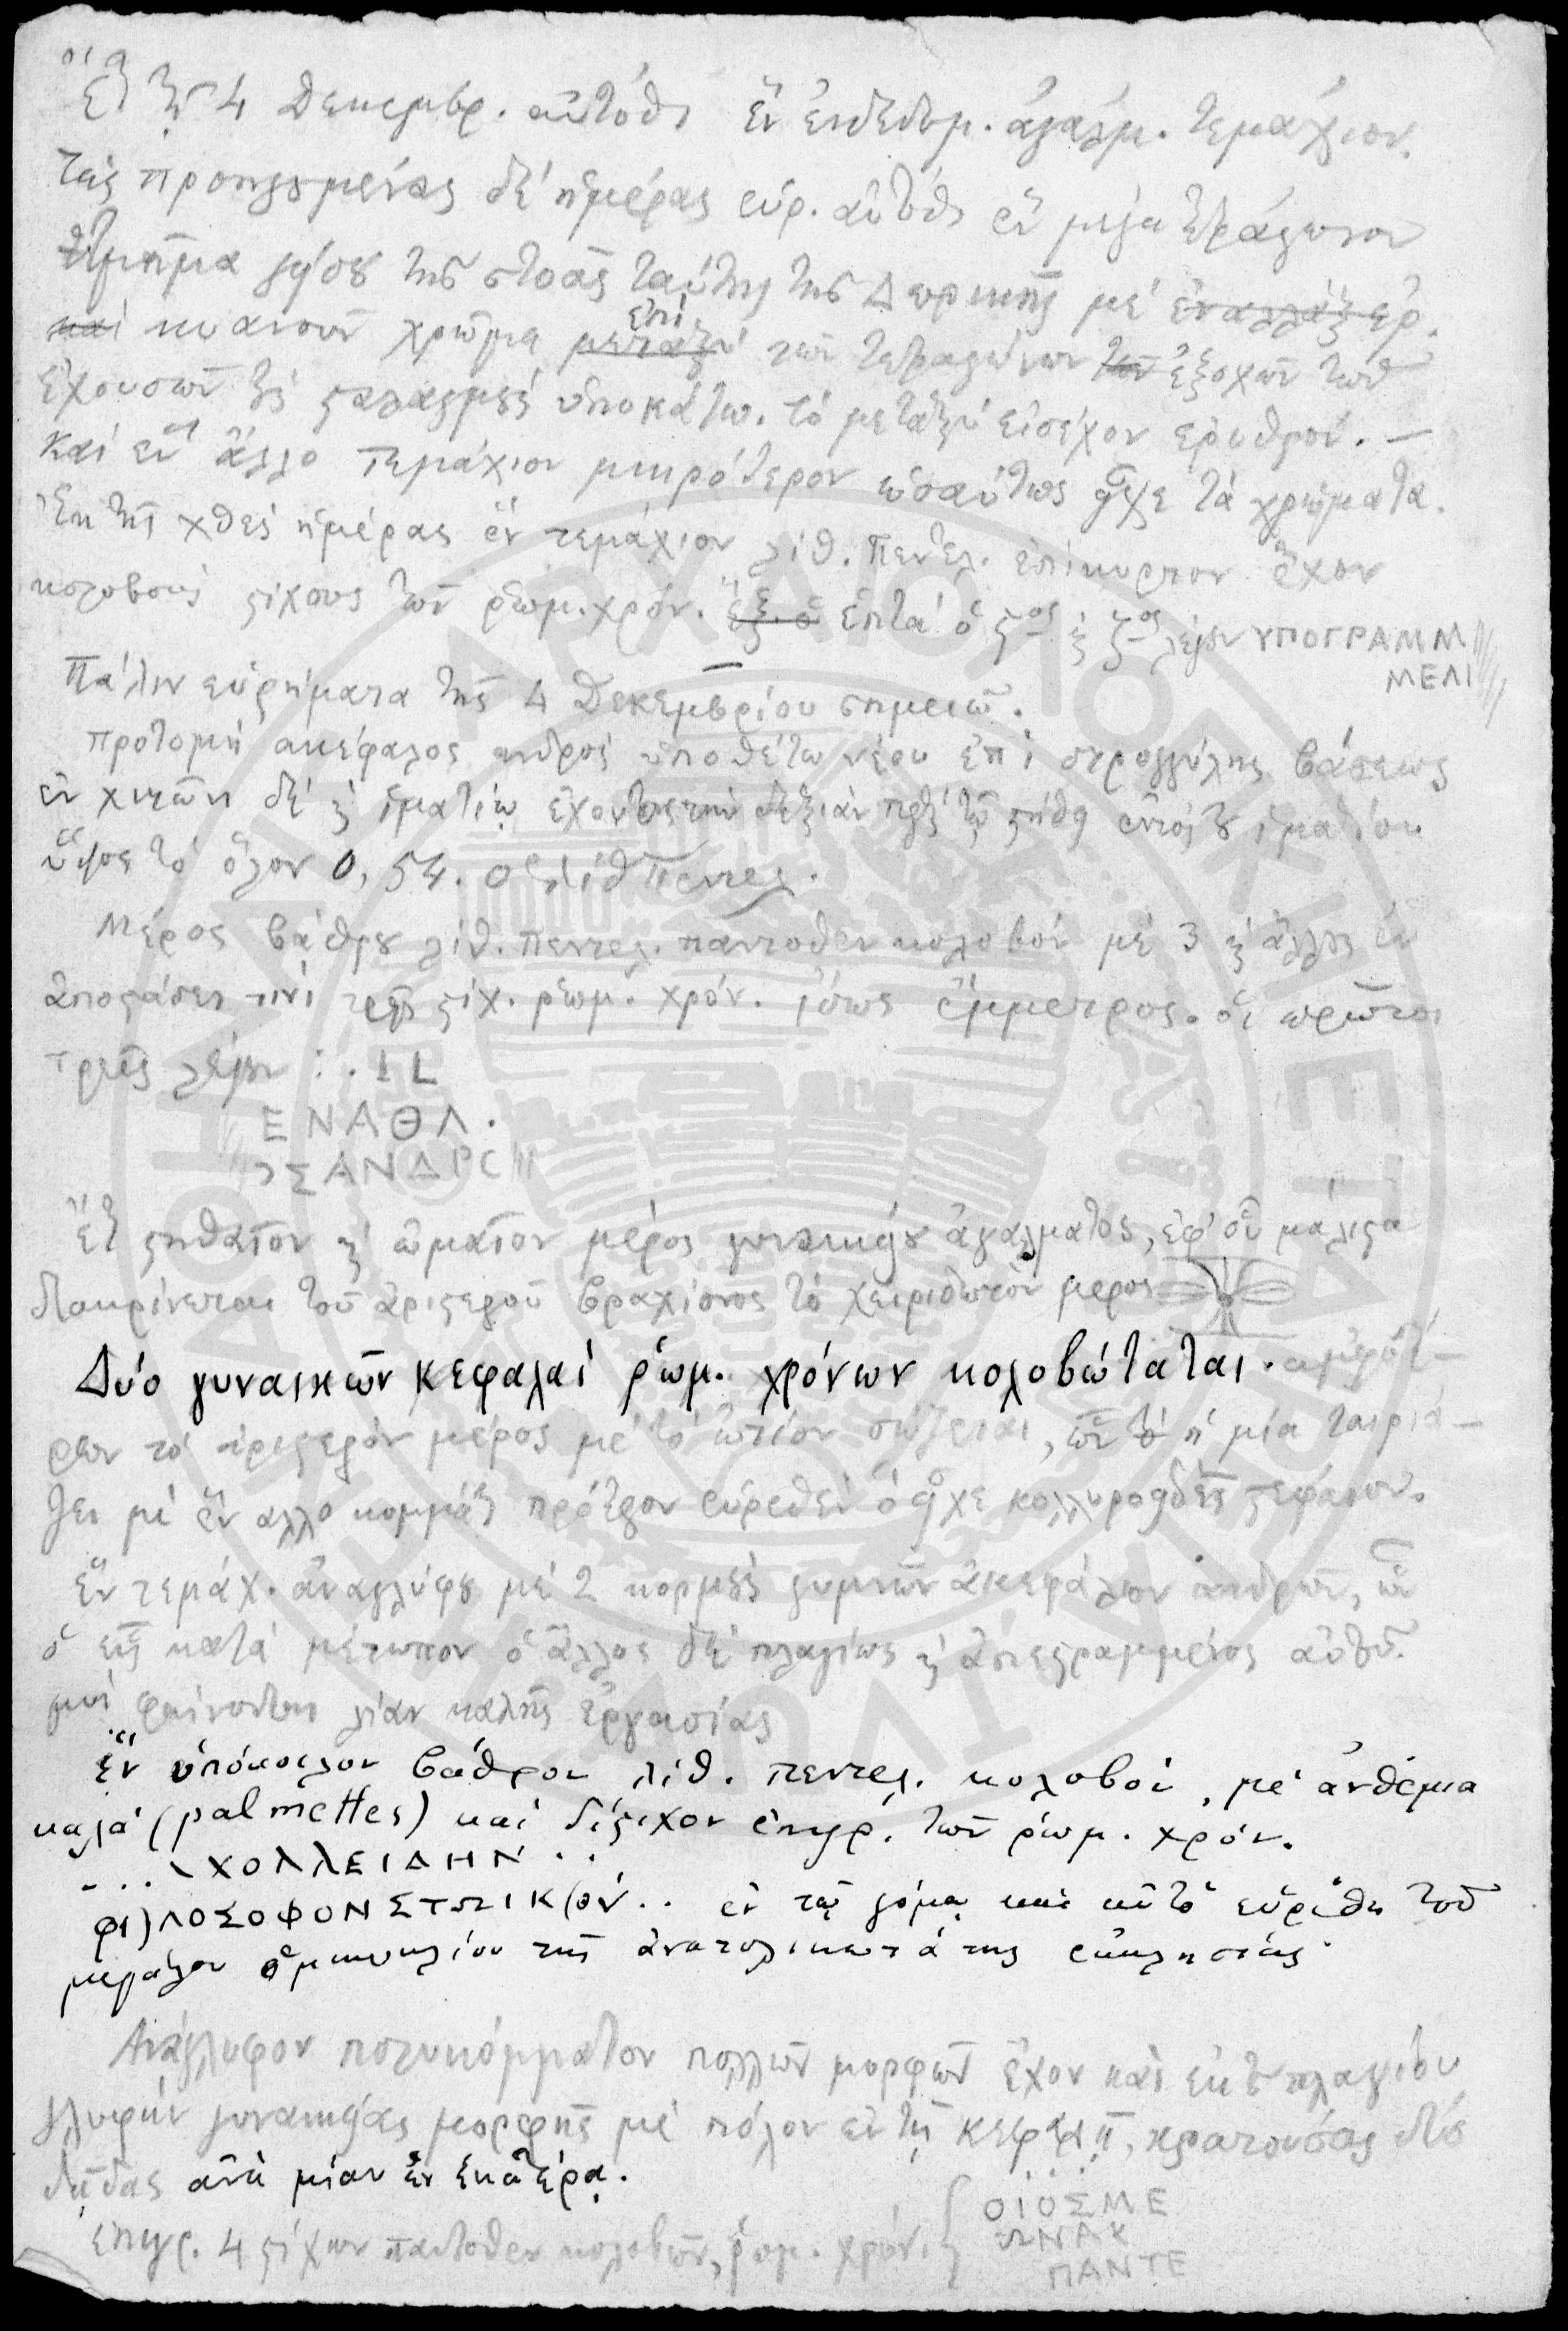 τῇ 4 Δεκεμβρ. αὐτόθι ἓν ἐνδεδυμ. ἀγάλμ. τεμάχιον.
τῆς προηγουμένας δὲ ἡμέρας εὑρ. αὐτόθι ἓν μέγα τετράγωνον
τμῆμα γείσου τῆς στοᾶς ταύτης τῆς Δωρικῆς μὲ ἐναλλὰξ ἐρ.
καὶ κυανοῦν χρῶμα μεταξὺ ἐπὶ τῶν τετραγώνων τῶν ἐξοχῶν τῶν
ἐχουσῶν τὲς σταλαγμὲς ὑποκάτω. τὸ μεταξὺ εἰσέχον ἐρυθρόν. —
Καὶ ἓν ἄλλο τεμάχιον μικρότερον ὡσαύτως εἶχε τὰ χρώματα.
Ἐκ τῆς χθὲς ἡμέρας ἓν τεμάχιον λίθ. Πεντελ. ἐπίκυρτον ἔχον
κολοβοὺς στίχους τῶν ῥωμ. χρόν. ἑπτὰ ὁ ϛος καὶ ζος λέγουν ΥΠΟΓΡΑΜΜ
ΜΕΛΙ
Πάλιν εὑρήματα τῆς 4 Δεκεμβρίου σημειῶ.
προτομὴ ἀκέφαλος ἀνδρὸς ὑποθέτω νέου ἐπὶ στρογγύλης βάσεως
ἐν χιτῶνι δὲ καὶ ἱματίῳ ἔχοντος τὴν δεξιὰν πρὸς τῷ στήθει ἐντὸς τοῦ ἱματίου
ὕψος τὸ ὅλον 0,54. ὁ λίθ Πεντελ.
Μέρος βάθρου λίθ. πεντελ. πάντοθεν κολοβὸν μὲ 3 καὶ ἄλλους ἐν
ἀποστάσει τινὶ τρεῖς στίχ. ῥωμ. χρόν. ἴσως ἔμμετρος. οἱ πρῶτοι
τρεῖς λέγουν : . Ι L
ΕΝΑΘΛ.
ΟΣΑΝΔΡΟ
Ἓν στηθαῖον καὶ ὠμαῖον μέρος γυναικείου ἀγάλματος, ἐφ' οὗ μάλιστα
διακρίνεται τοῦ ἀριστεροῦ βραχίονος τὸ χειριδωτὸν μέρος
Δύο γυναικῶν κεφαλαὶ ῥωμ. χρόνων κολοβώταται. ἀμφοτέ-
ρων τὸ ἀριστερὸν μέρος μὲ τὸ ὠτίον σώζεται, ὧν ἡ μία ταιριά-
ζει μὲ ἓν ἄλλο κομμάτι πρότερον εὑρεθὲν ὁ εἶχε κολλυροειδῆ στέφανον.
Ἓν τεμάχ. ἀναγλύφου μὲ 2 κορμοὺς γυμνῶν ἀκεφάλων ἀνδρῶν, ὧν
ὁ εἷς κατὰ μέτωπον ὁ ἄλλος δὲ πλαγίως καὶ ἀπεστραμμένος αὐτοῦ.
μοὶ φαίνονται λίαν καλῆς ἐργασίας
Ἓν ὑπόκοιλον βάθρον λίθ. πεντελ. κολοβὸν, μὲ ἀνθέμια
καλὰ (palmettes) καὶ δίστιχον ἐπιγρ. τῶν ῥωμ. χρόν.
- . . . ΧΟΛΛΕΙΔΗΝ . .
φι)ΛΟΣΟΦΟΝ ΣΤΩΙΚ(όν . . ἐν τῷ χώμα καὶ αὐτὸ εὑρέθη τοῦ
μεγάλου ἡμικυκλίου τῆς ἀνατολικωτάτης ἐκκλησίας.
Ἀνάγλυφον πολυκόμματον πολλῶν μορφῶν ἔχον καὶ ἐκ τοῦ πλαγίου
γλυφὴν γυναικείας μορφῆς μὲ πόλον ἐν τῇ κεφαλῇ, κρατούσας δύο
δᾷδας ἀνὰ μίαν ἐν ἑκατέρᾳ.
Ἐπιγρ. 4 στίχων παντόθεν κολοβῶν, ῥωμ. χρόν.
ΟΙΟΣΜΕ
ΩΝΑΚ
ΠΑΝΤΕ